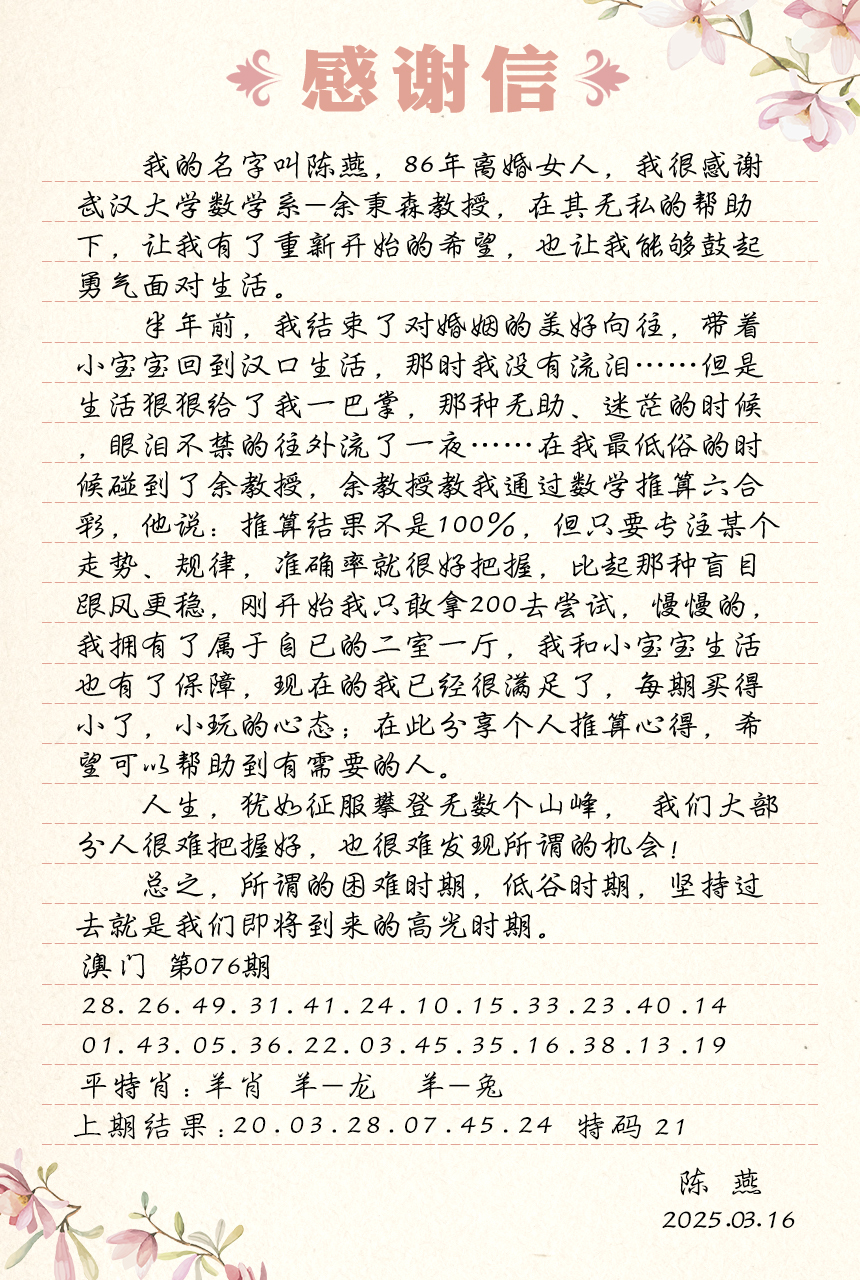 感谢信
我的名字叫陈燕，86年离婚女人，我很感谢
武汉大学数学系—余秉森教授，在其无私的帮助
下，让我有了重新开始的希望，也让我能够鼓起
勇气面对生活。
半年前，我结束了对婚姻的美好向往，带着
小宝宝回到汉口生活，那时我没有流泪……但是
生活狠狠给了我一巴掌，那种无助、迷茫的时候
，眼泪不禁的往外流了一夜……在我最低俗的时
候碰到了余教授，余教授教我通过数学推算六合
彩，他说：推算结果不是100%，但只要专注某个
走势、规律，准确率就很好把握，比起那种盲目
跟风更稳，刚开始我只敢拿200去尝试，慢慢的，
我拥有了属于自已的二室一厅，我和小宝宝生活
也有了保障，现在的我已经很满足了，每期买得
小了，小玩的心态；在此分享个人推算心得，希
望可以帮助到有需要的人。
人生，犹如征服攀登无数个山峰， 我们大部
分人很难把握好，也很难发现所谓的机会！
总之，所谓的困难时期，低谷时期，坚持过
去就是我们即将到来的高光时期。
澳门 第076期
28.26.49.31.41.24.10.15.33.23.40.14
01.43.05.36.22.03.45.35.16.38.13.19
平特肖：羊肖 羊—龙 羊—兔
上期结果：20.03.28.07.45.24 特码 21
陈 燕
2025.03.16